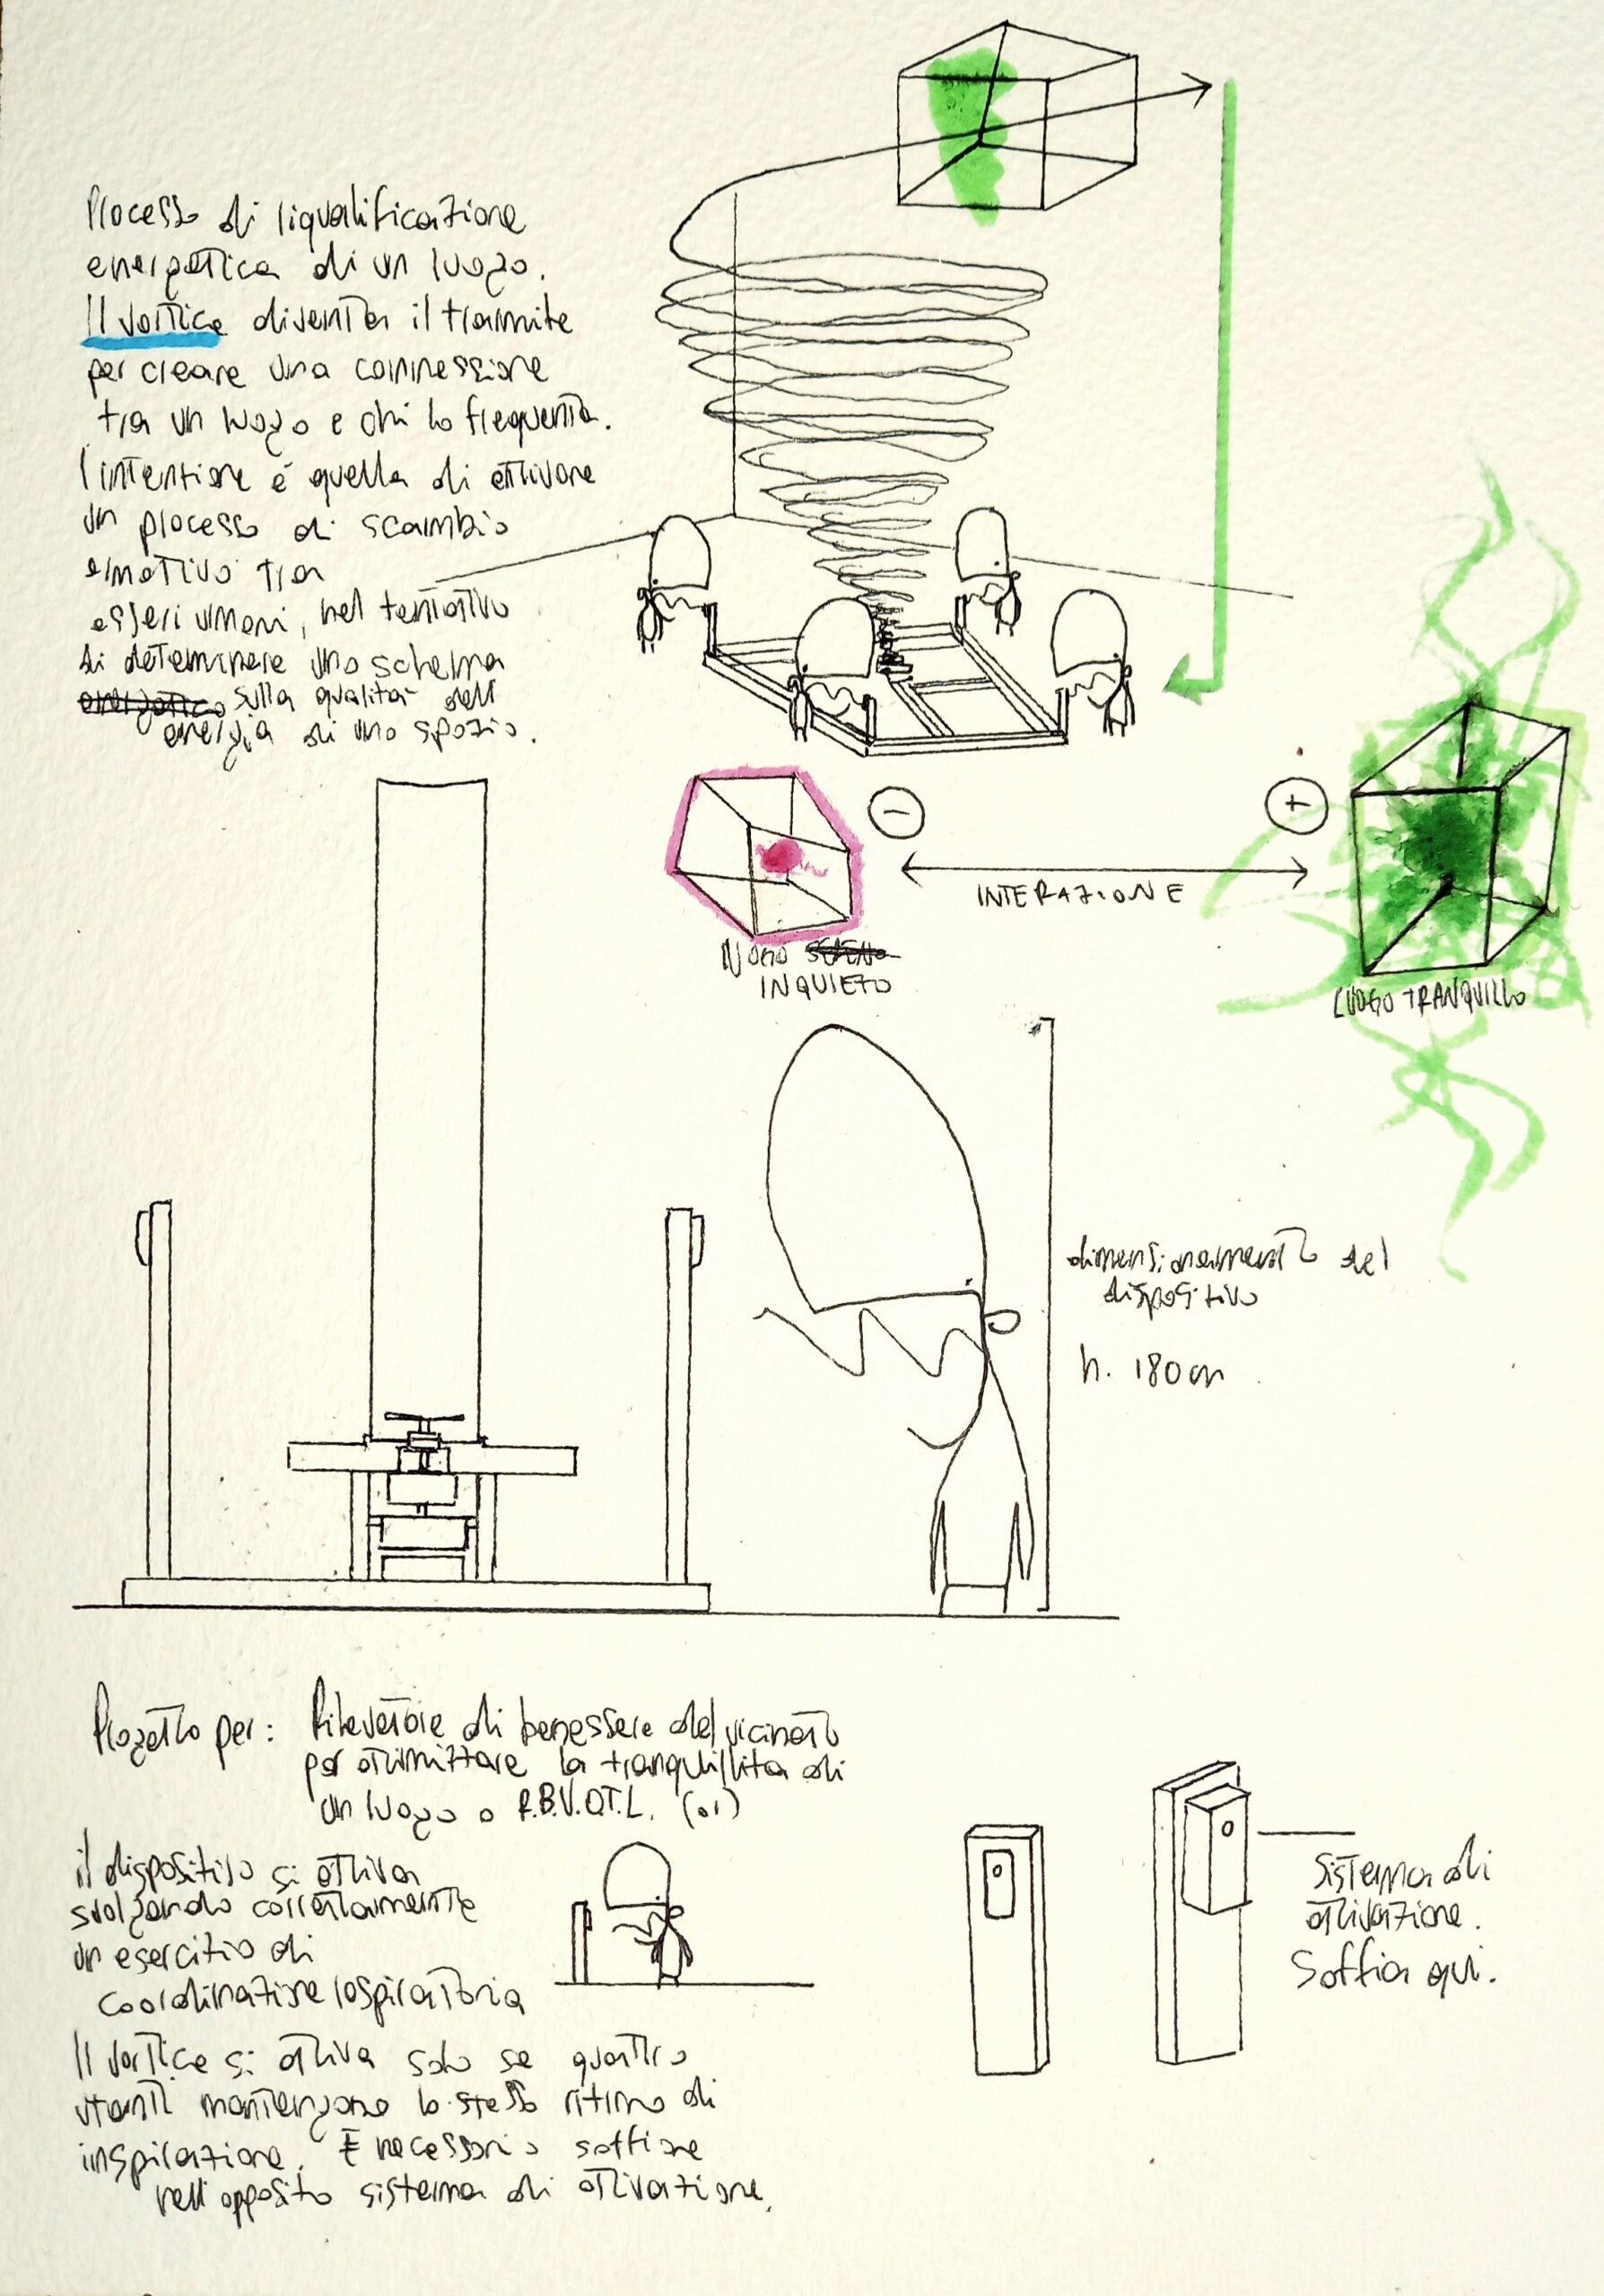 Processo di riqualificazione
energetica di un luogo.
Il vortice diventa il tramite
per creare una connessione
tra un luogo e chi lo frequenta.
l'intenzione è quella di attivare
un processo di scambio
emotivo tra
esseri umani, nel tentativo
di determinare uno schema
energetico sulla qualità dell'
energia di uno spazio.
INTERAZIONE
LUOGO
INQUIETO
LUOGO TRANQUILLO
dimensionamento del
dispositivo
h. 180cm
Progetto per: Rilevatore di benessere del vicinato
per ottimizzare la tranquillità di
un luogo o R.B.V.O.T.L. (01)
il dispositivo si attiva
svolgendo correttamente
un esercizio di
coordinazione respiratoria
Il vortice si attiva solo se quattro
utenti mantengono lo stesso ritmo di
inspirazione. È necessario soffiare
nell'opposito sistema di attivazione.
Sistema di
attivazione.
Soffia qui.